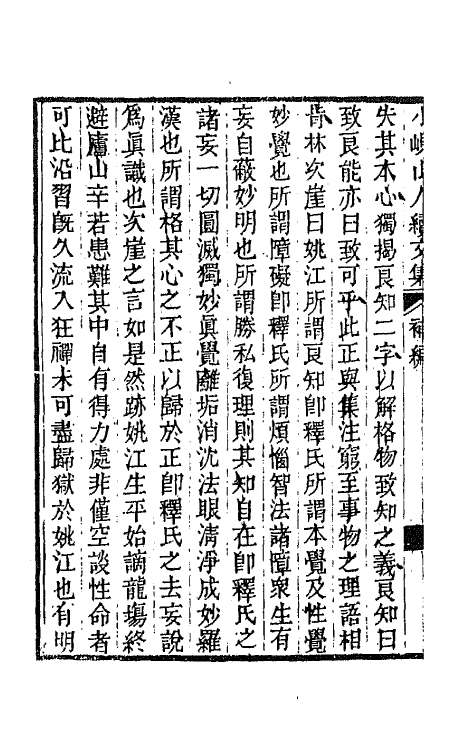 小峴山人續文集 補編
失其本心獨揭良知二字以解格物致知之義良知曰
致良能亦曰致可乎此正與集注窮至事物之理語相
背林次崖曰姚江所謂良知卽釋氏所謂本覺及性覺
妙覺也所謂障礙卽釋氏所謂煩惱智法諸障衆生有
妄自蔽妙明也所謂勝私復理則其知自在卽釋氏之
諸妄一切圓滅獨妙眞覺離垢消沈法眼清淨成妙羅
漢也所謂格其心之不正以歸於正卽釋氏之去妄說
爲眞識也次崖之言如是然跡姚江生平始謫龍塲終
避廬山辛苦患難其中自有得力處非僅空談性命者
可比沿習旣久流入狂禪未可盡歸獄於姚江也有明